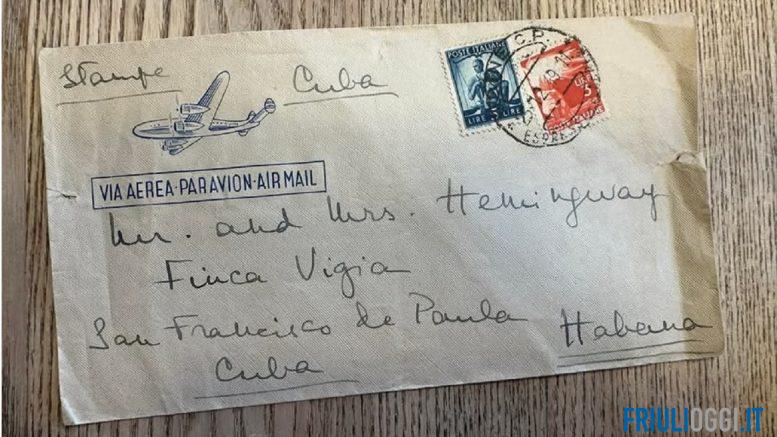 Stampe
Cuba
POSTE ITALIANE
LIRE 5 LIRE
VIA AEREA-PAR AVION-AIR MAIL
Mr. and Mrs. Hemingway
Finca Vigia
San Francisco de Paula
Habana
Cuba
FRIULIOGGI.IT